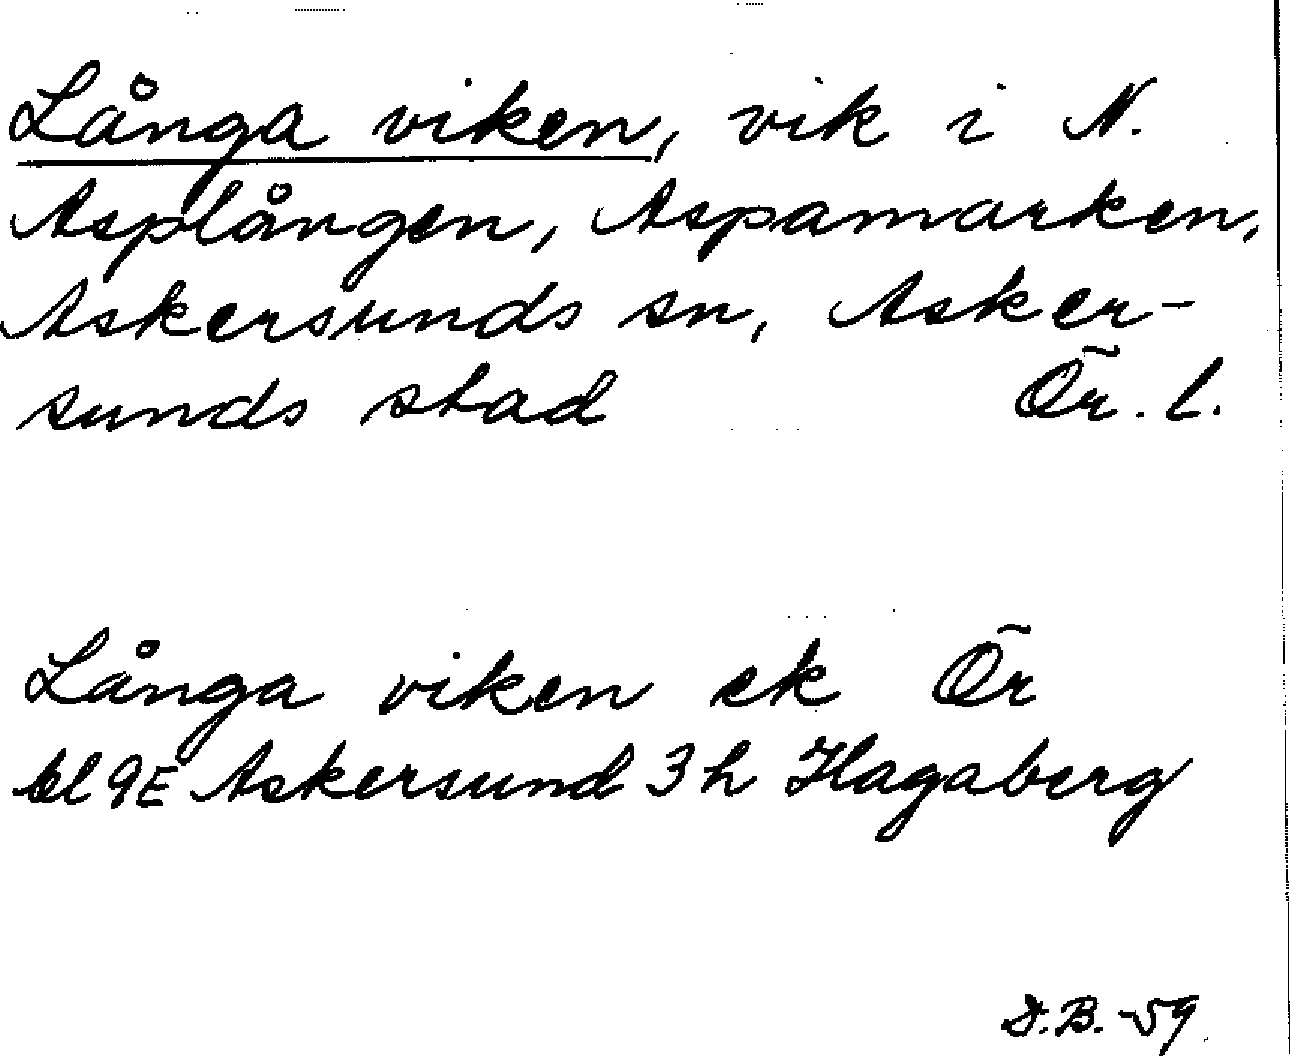 Långa viken, vik i N.
Asplången, Aspamarken,
Askersunds sn, Asker-
sunds stad Ör. l.
Långa viken ek Ör
bl 9E Askersund 3h Hagaberg
D.B. -59